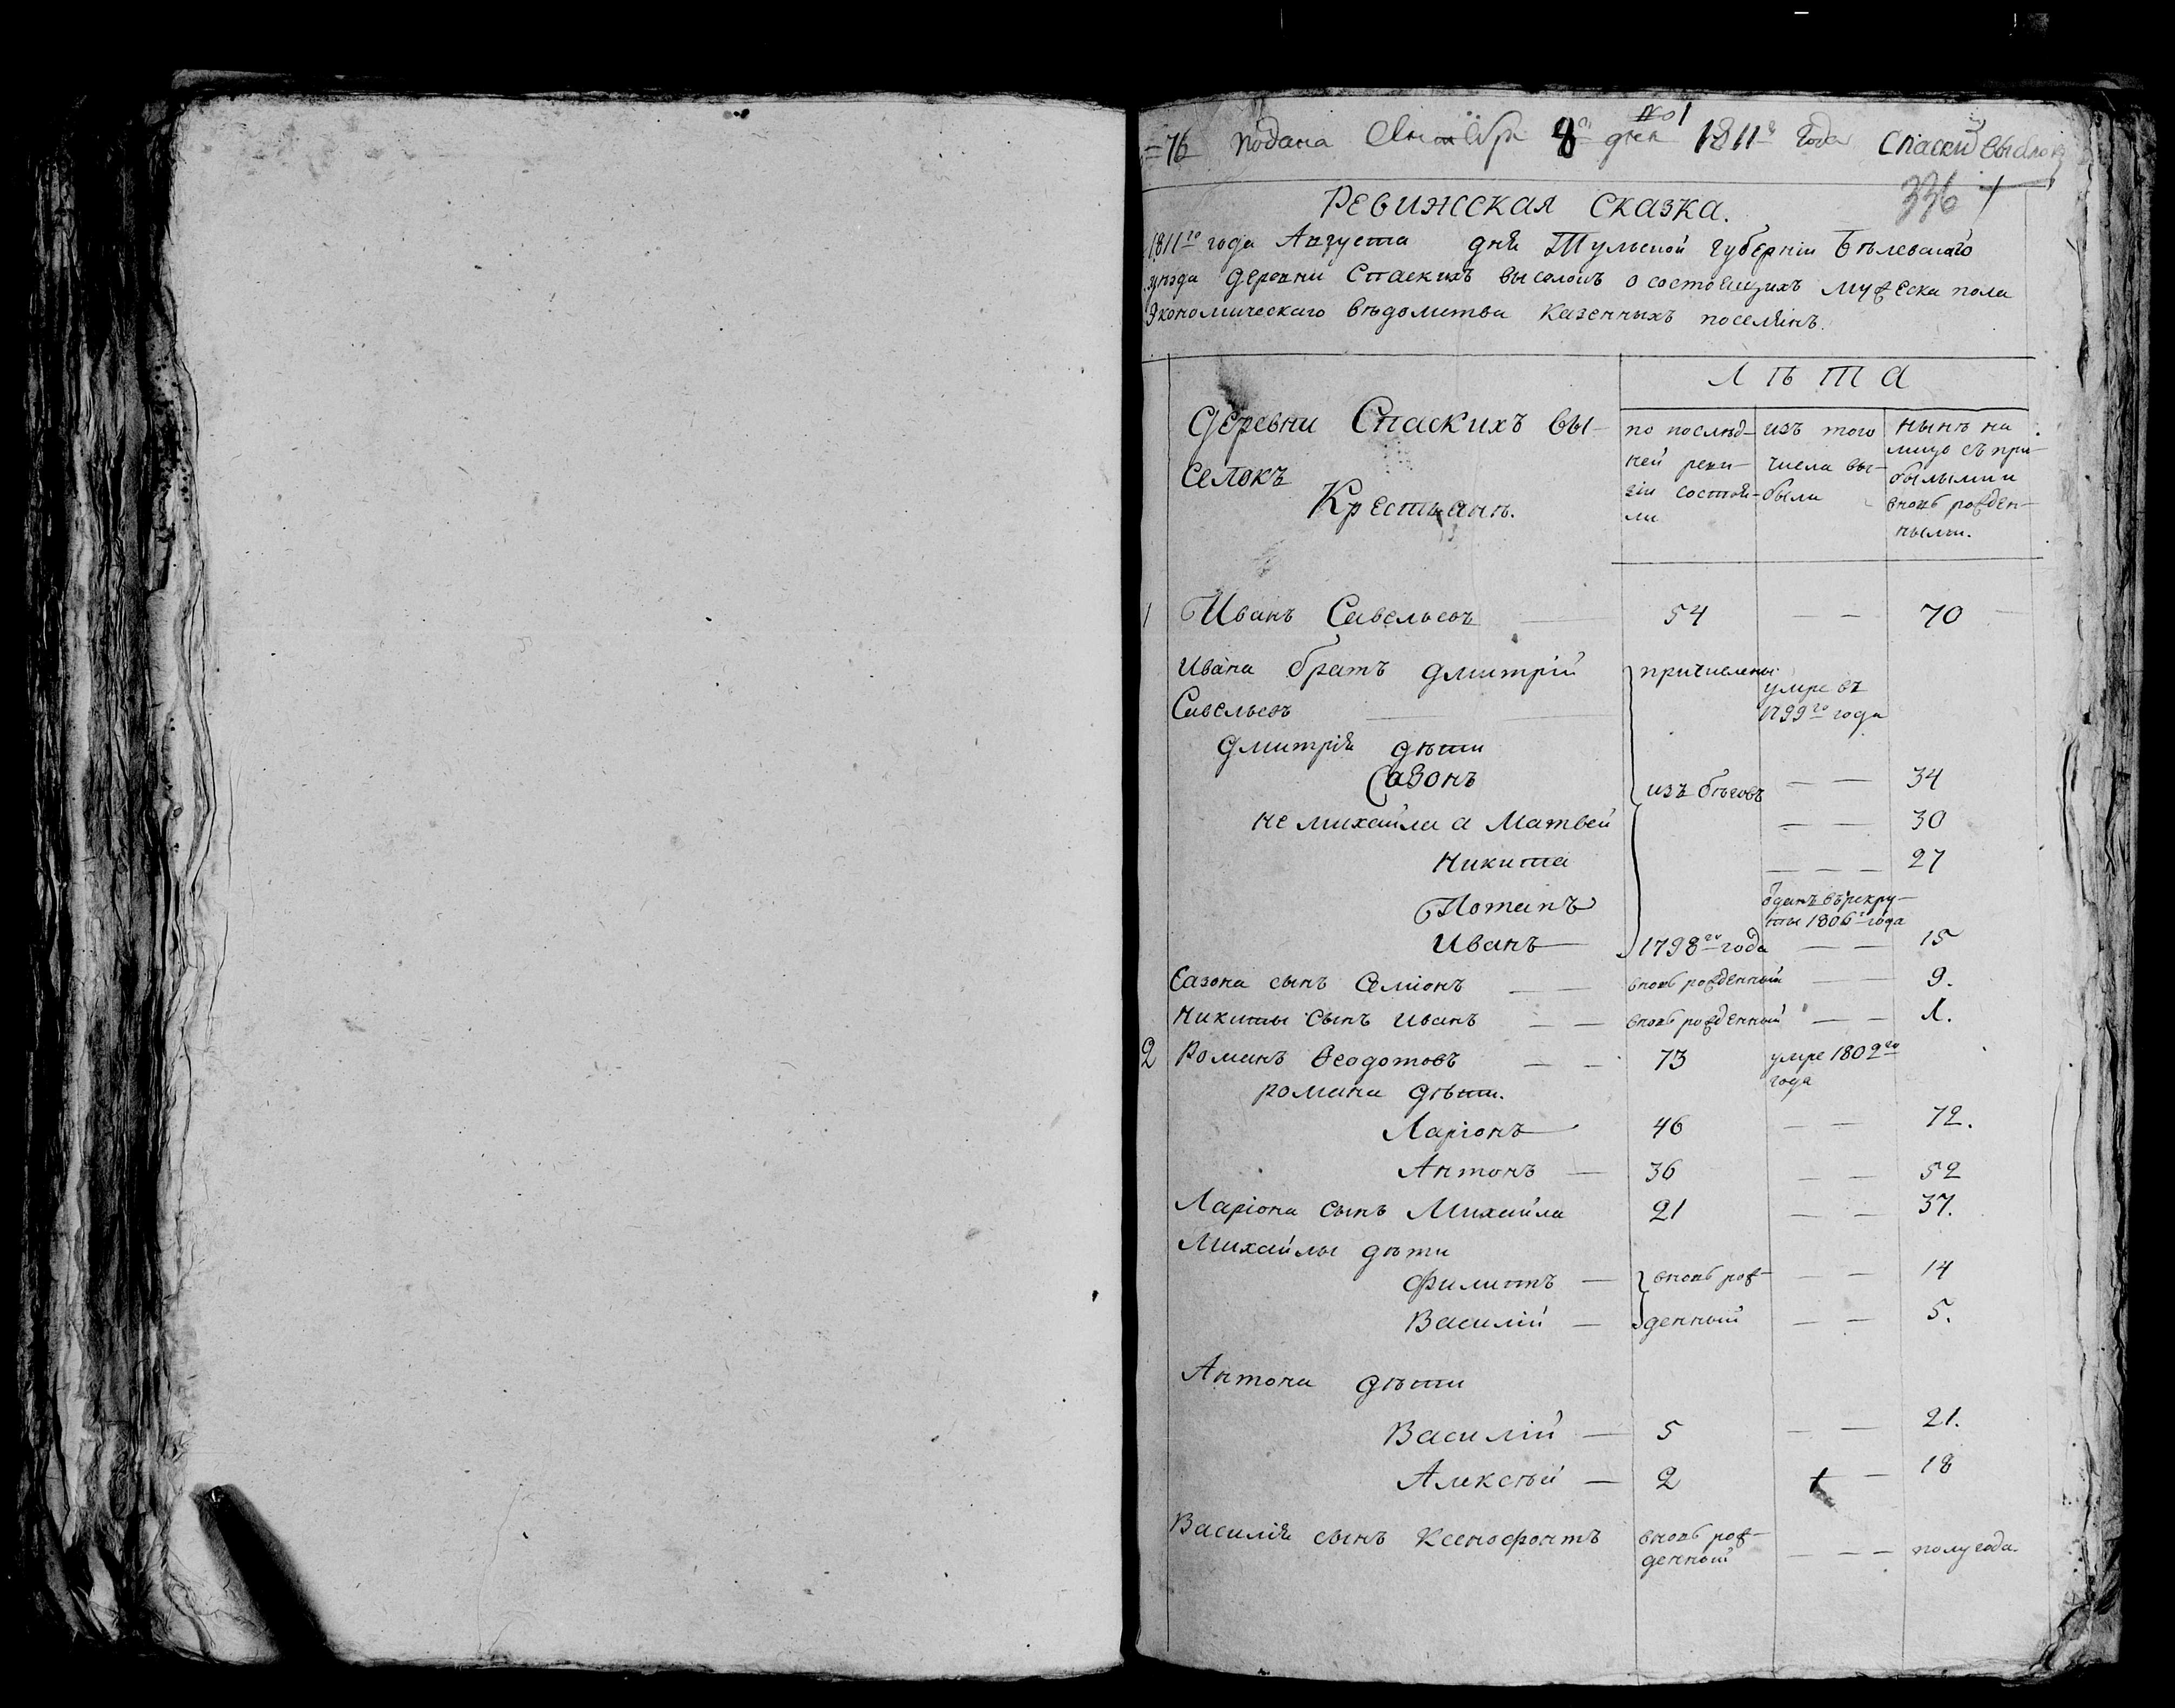 № 1
76 подана Октября 8 дня 1811го года Спаски выселокъ
336
Ревижская сказка.
1811го года Августа дня Тульской губерніи Бѣлевскаго
уѣзда деревни Спаскихъ выселокъ о состоящихъ мужеска пола
Экономическаго вѣдомства казенныхъ поселянъ.
Лѣта
Деревни Спаскихъ вы-
селокъ
Крестьянъ.
по послѣд-
ней реви-
зіи состоя-
ли
изъ того
числа вы-
были
нынѣ на
лицо съ при-
былыми и
вновь рожден-
ными.
1 Иванъ Савельевъ 54 — — 70
Ивана братъ Дмитрій причислены умре въ
Савельевъ 1799го года
Дмитрія дѣти
Сазонъ изъ бѣговъ — — 34
не Михайла а Матвей — — 30
Никита — — — 27
Потапъ оданъ въ рекру-
ты 1806г года
Иванъ 1798го года — — 15
Сазона сынъ Семіонъ — — вновь рожденный — — 9.
Никиты сынъ Иванъ — — вновь рожденный — — 1.
2 Романъ Ѳеодотовъ — — 73 умре 1802го
года
Романа дѣти.
Ларіонъ 46 — — 72.
Антонъ — 36 — — 52
Ларіона сынъ Михайла 21 — — 37.
Михайлы дѣти
Филиппъ — вновь рож- — — 14
Василій — денный — — 5.
Антона дѣти
Василій — 5 — — 21.
Алексѣй — 2 — 18
Василія сынъ Ксенофонтъ вновь рож-
денный — — — полугода.